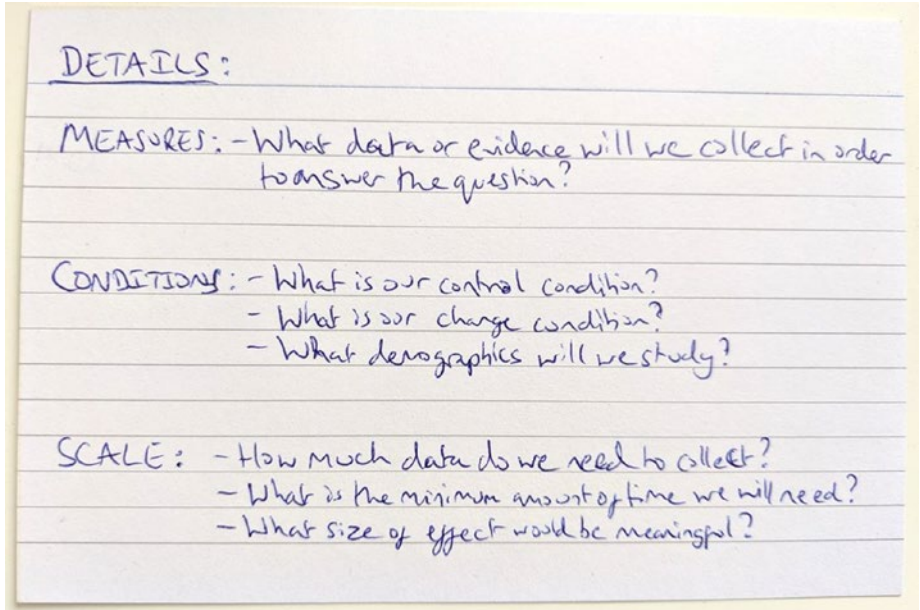 DETAILS:
MEASURES: - What data or evidence will we collect in order
to answer the question?
CONDITIONS: - What is our control condition?
- What is our change condition?
- What demographics will we study?
SCALE: - How much data do we need to collect?
- What is the minimum amount of time we will need?
- What size of effect would be meaningful?